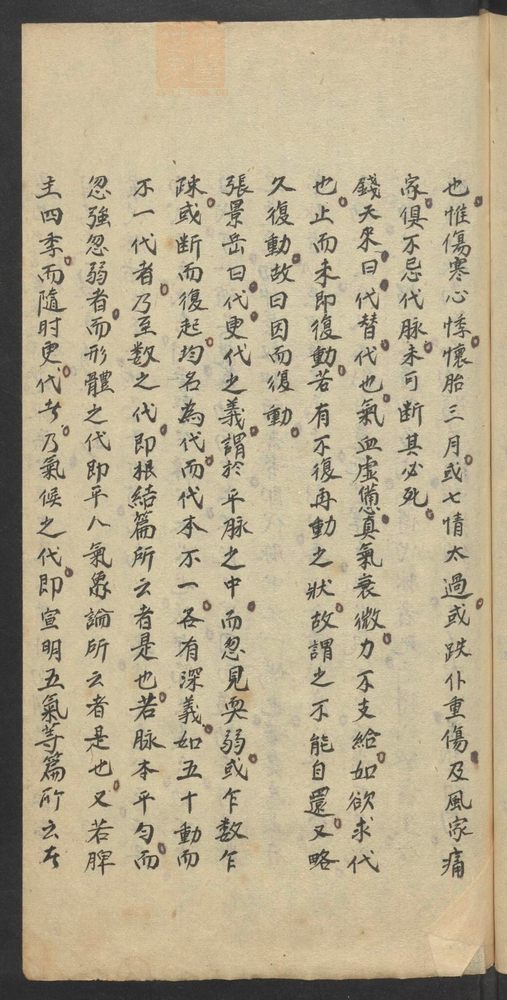 也惟傷寒心悸懷胎三月或七情太過或跌仆重傷及風家痛
家俱不忌代脉未可断其必死
錢天來曰代替代也氣血虛憊真氣衰微力不支給如欲求代
也止而未即復動若有不復再動之狀故謂之不能自還又略
久復動故曰因而復動
張景岳曰代更代之義謂於平脉之中而忽見耎弱或乍数乍
踈或断而復起均名為代而代本不一各有深義如五十動而
不一代者乃至数之代即根結篇所云者是也若脉本平匀而
忽強忽弱者而形體之代即平人氣象論所云者是也又若脾
主四季而隨时更代者乃氣候之代即宣明五氣等篇所云者